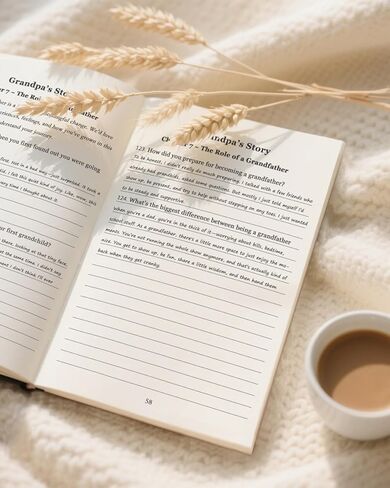 Grandpa's Story
er 7 – The Ro randfather
ther is a ningful change. We'd love
eriences, feelings, and how you've grown in this
understand your journey.
hen you first found out you were going
first, like in a bad way—just surprised. It took a
did, I felt this quiet kind of joy. Like, wow, this
my time I thought about it.
our first grandchild?
there, looking at that tiny face,
at the same time. I didn't say
ment I don't think I'll ever
andpa's Story
Ch 7 – The Role of a Grandfather
123. How did you prepare for becoming a grandfather?
To be honest, I didn't really do much preparing. I talked with a few friends who
already had grandkids, asked some questions. But mostly I just told myself I'd
show up, be present, and try to help without stepping on any toes. I just wanted
to be steady and supportive.
124. What's the biggest difference between being a grandfather
When you're a dad, you're in the thick of it—worrying about bills, bedtime,
school stuff. As a grandfather, there's a little more space to just enjoy the mo-
ments. You're not running the whole show anymore, and that's actually kind of
nice. You get to show up, be fun, share a little wisdom, and then hand them
back when they get cranky.
58